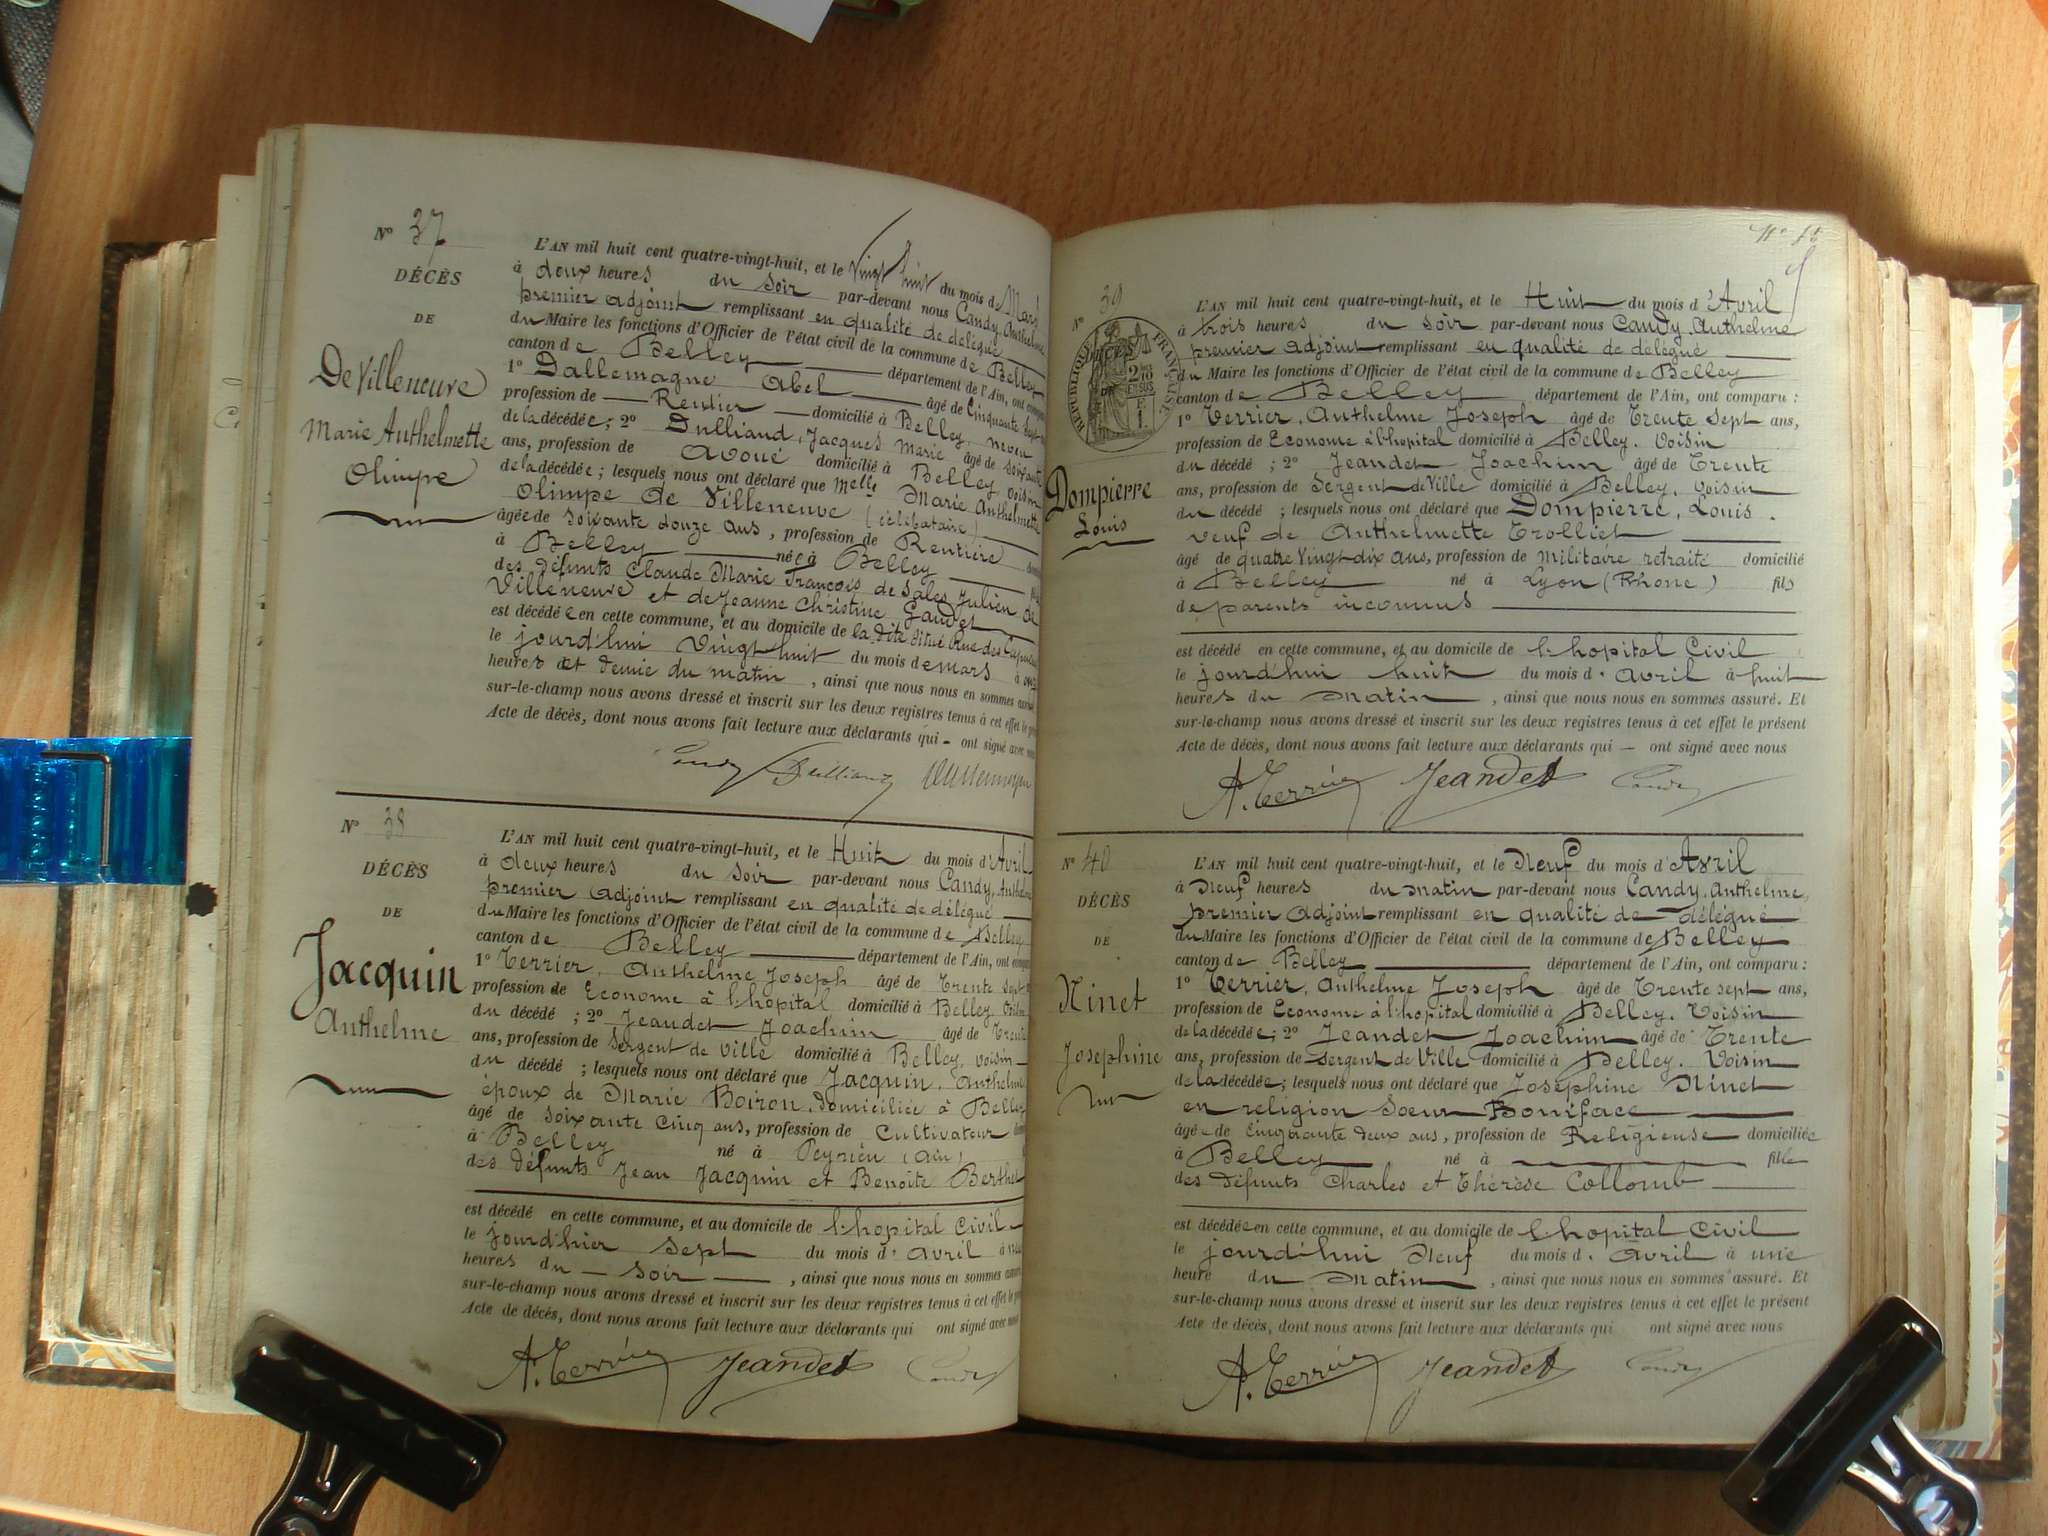 N° 37
DÉCÈS
DE
De Villeneuve
Marie Anthelmette
Olimpe
L'AN mil huit cent quatre-vingt-huit, et le vingt huit du mois de Mars
à deux heures du soir par-devant nous Candy, Anthelme
premier adjoint remplissant en qualité de délégué
du Maire les fonctions d'Officier de l'état civil de la commune de Belley
canton de Belley département de l'Ain, ont comparu
1° Dallemagne Abel âgé de Cinquante sept
profession de Rentier domicilié à Belley, neveu
de la décédée; 2° Dulliand, Jacques Marie âgé de soixante
ans, profession de Avoué domicilié à Belley, voisin
de la décédée; lesquels nous ont déclaré que Melle Marie Anthelmette
Olimpe de Villeneuve (célébataire)
âgée de soixante douze ans, profession de Rentière
à Belley née à Belley
des défunts Claude Marie François de Sales Julien de
Villeneuve et de Jeanne Christine Gaudet
est décédée en cette commune, et au domicile de la dite situé Rue des
le jourd'hui vingt huit du mois de Mars à
heures et demie du matin, ainsi que nous nous en sommes
sur-le-champ nous avons dressé et inscrit sur les deux registres tenus à cet effet le
Acte de décès, dont nous avons fait lecture aux déclarants qui - ont signé avec
Candy Dulliand
N° 38
DÉCÈS
DE
Jacquin
Anthelme
L'AN mil huit cent quatre-vingt-huit, et le Huit du mois d'Avril
à deux heures du soir par-devant nous Candy, Anthelme
premier adjoint remplissant en qualité de délégué
du Maire les fonctions d'Officier de l'état civil de la commune de Belley
canton de Belley département de l'Ain, ont
1° Terrier, Anthelme Joseph âgé de Trente sept
profession de Econome à l'hopital domicilié à Belley, Voisin
du décédé; 2° Jeandet Joachim âgé de Trente
ans, profession de Sergent de Ville domicilié à Belley, voisin
du décédé; lesquels nous ont déclaré que Jacquin, Anthelme
époux de Marie Boiron, domiciliée à Belley
âgé de soixante cinq ans, profession de Cultivateur
à Belley né à Peyrieu (Ain)
des défunts Jean Jacquin et Benoîte Berthet
est décédé en cette commune, et au domicile de l'hopital Civil
le jourd'hier sept du mois d'avril à
heures du soir, ainsi que nous nous en sommes
sur-le-champ nous avons dressé et inscrit sur les deux registres tenus à cet effet le
Acte de décès, dont nous avons fait lecture aux déclarants qui ont signé avec
A. Terrier Jeandet Candy
N° 39
RÉPUBLIQUE FRANÇAISE
DÉCÈS
Dompierre
Louis
L'AN mil huit cent quatre-vingt-huit, et le Huit du mois d'Avril
à trois heures du soir par-devant nous Candy, Anthelme
premier adjoint remplissant en qualité de délégué
du Maire les fonctions d'Officier de l'état civil de la commune de Belley
canton de Belley département de l'Ain, ont comparu :
1° Terrier, Anthelme Joseph âgé de Trente sept ans,
profession de Econome à l'hopital domicilié à Belley, Voisin
du décédé; 2° Jeandet Joachim âgé de Trente
ans, profession de Sergent de Ville domicilié à Belley, voisin
du décédé; lesquels nous ont déclaré que Dompierre, Louis.
veuf de Anthelmette Trolliet
âgé de quatre vingt dix ans, profession de militaire retraité domicilié
à Belley né à Lyon (Rhone) fils
de parents inconnus
est décédé en cette commune, et au domicile de l'hopital Civil
le jourd'hui huit du mois d'avril à huit
heures du matin, ainsi que nous nous en sommes assuré. Et
sur-le-champ nous avons dressé et inscrit sur les deux registres tenus à cet effet le présent
Acte de décès, dont nous avons fait lecture aux déclarants qui - ont signé avec nous
A. Terrier Jeandet Candy
N° 40
DÉCÈS
DE
Ninet
Josephine
L'AN mil huit cent quatre-vingt-huit, et le Neuf du mois d'Avril
à Neuf heures du matin par-devant nous Candy, Anthelme,
premier adjoint remplissant en qualité de délégué
du Maire les fonctions d'Officier de l'état civil de la commune de Belley
canton de Belley département de l'Ain, ont comparu :
1° Terrier, Anthelme Joseph âgé de Trente sept ans,
profession de Econome à l'hopital domicilié à Belley, Voisin
de la décédée; 2° Jeandet Joachim âgé de Trente
ans, profession de Sergent de Ville domicilié à Belley, Voisin
de la décédée; lesquels nous ont déclaré que Joséphine Ninet
en religion Sœur Boniface
âgée de Cinquante deux ans, profession de Religieuse domiciliée
à Belley né à fille
des défunts Charles et Thérèse Collomb
est décédée en cette commune, et au domicile de l'hopital Civil
le jourd'hui Neuf du mois d'avril à une
heure du matin, ainsi que nous nous en sommes assuré. Et
sur-le-champ nous avons dressé et inscrit sur les deux registres tenus à cet effet le présent
Acte de décès, dont nous avons fait lecture aux déclarants qui ont signé avec nous
A. Terrier Jeandet Candy